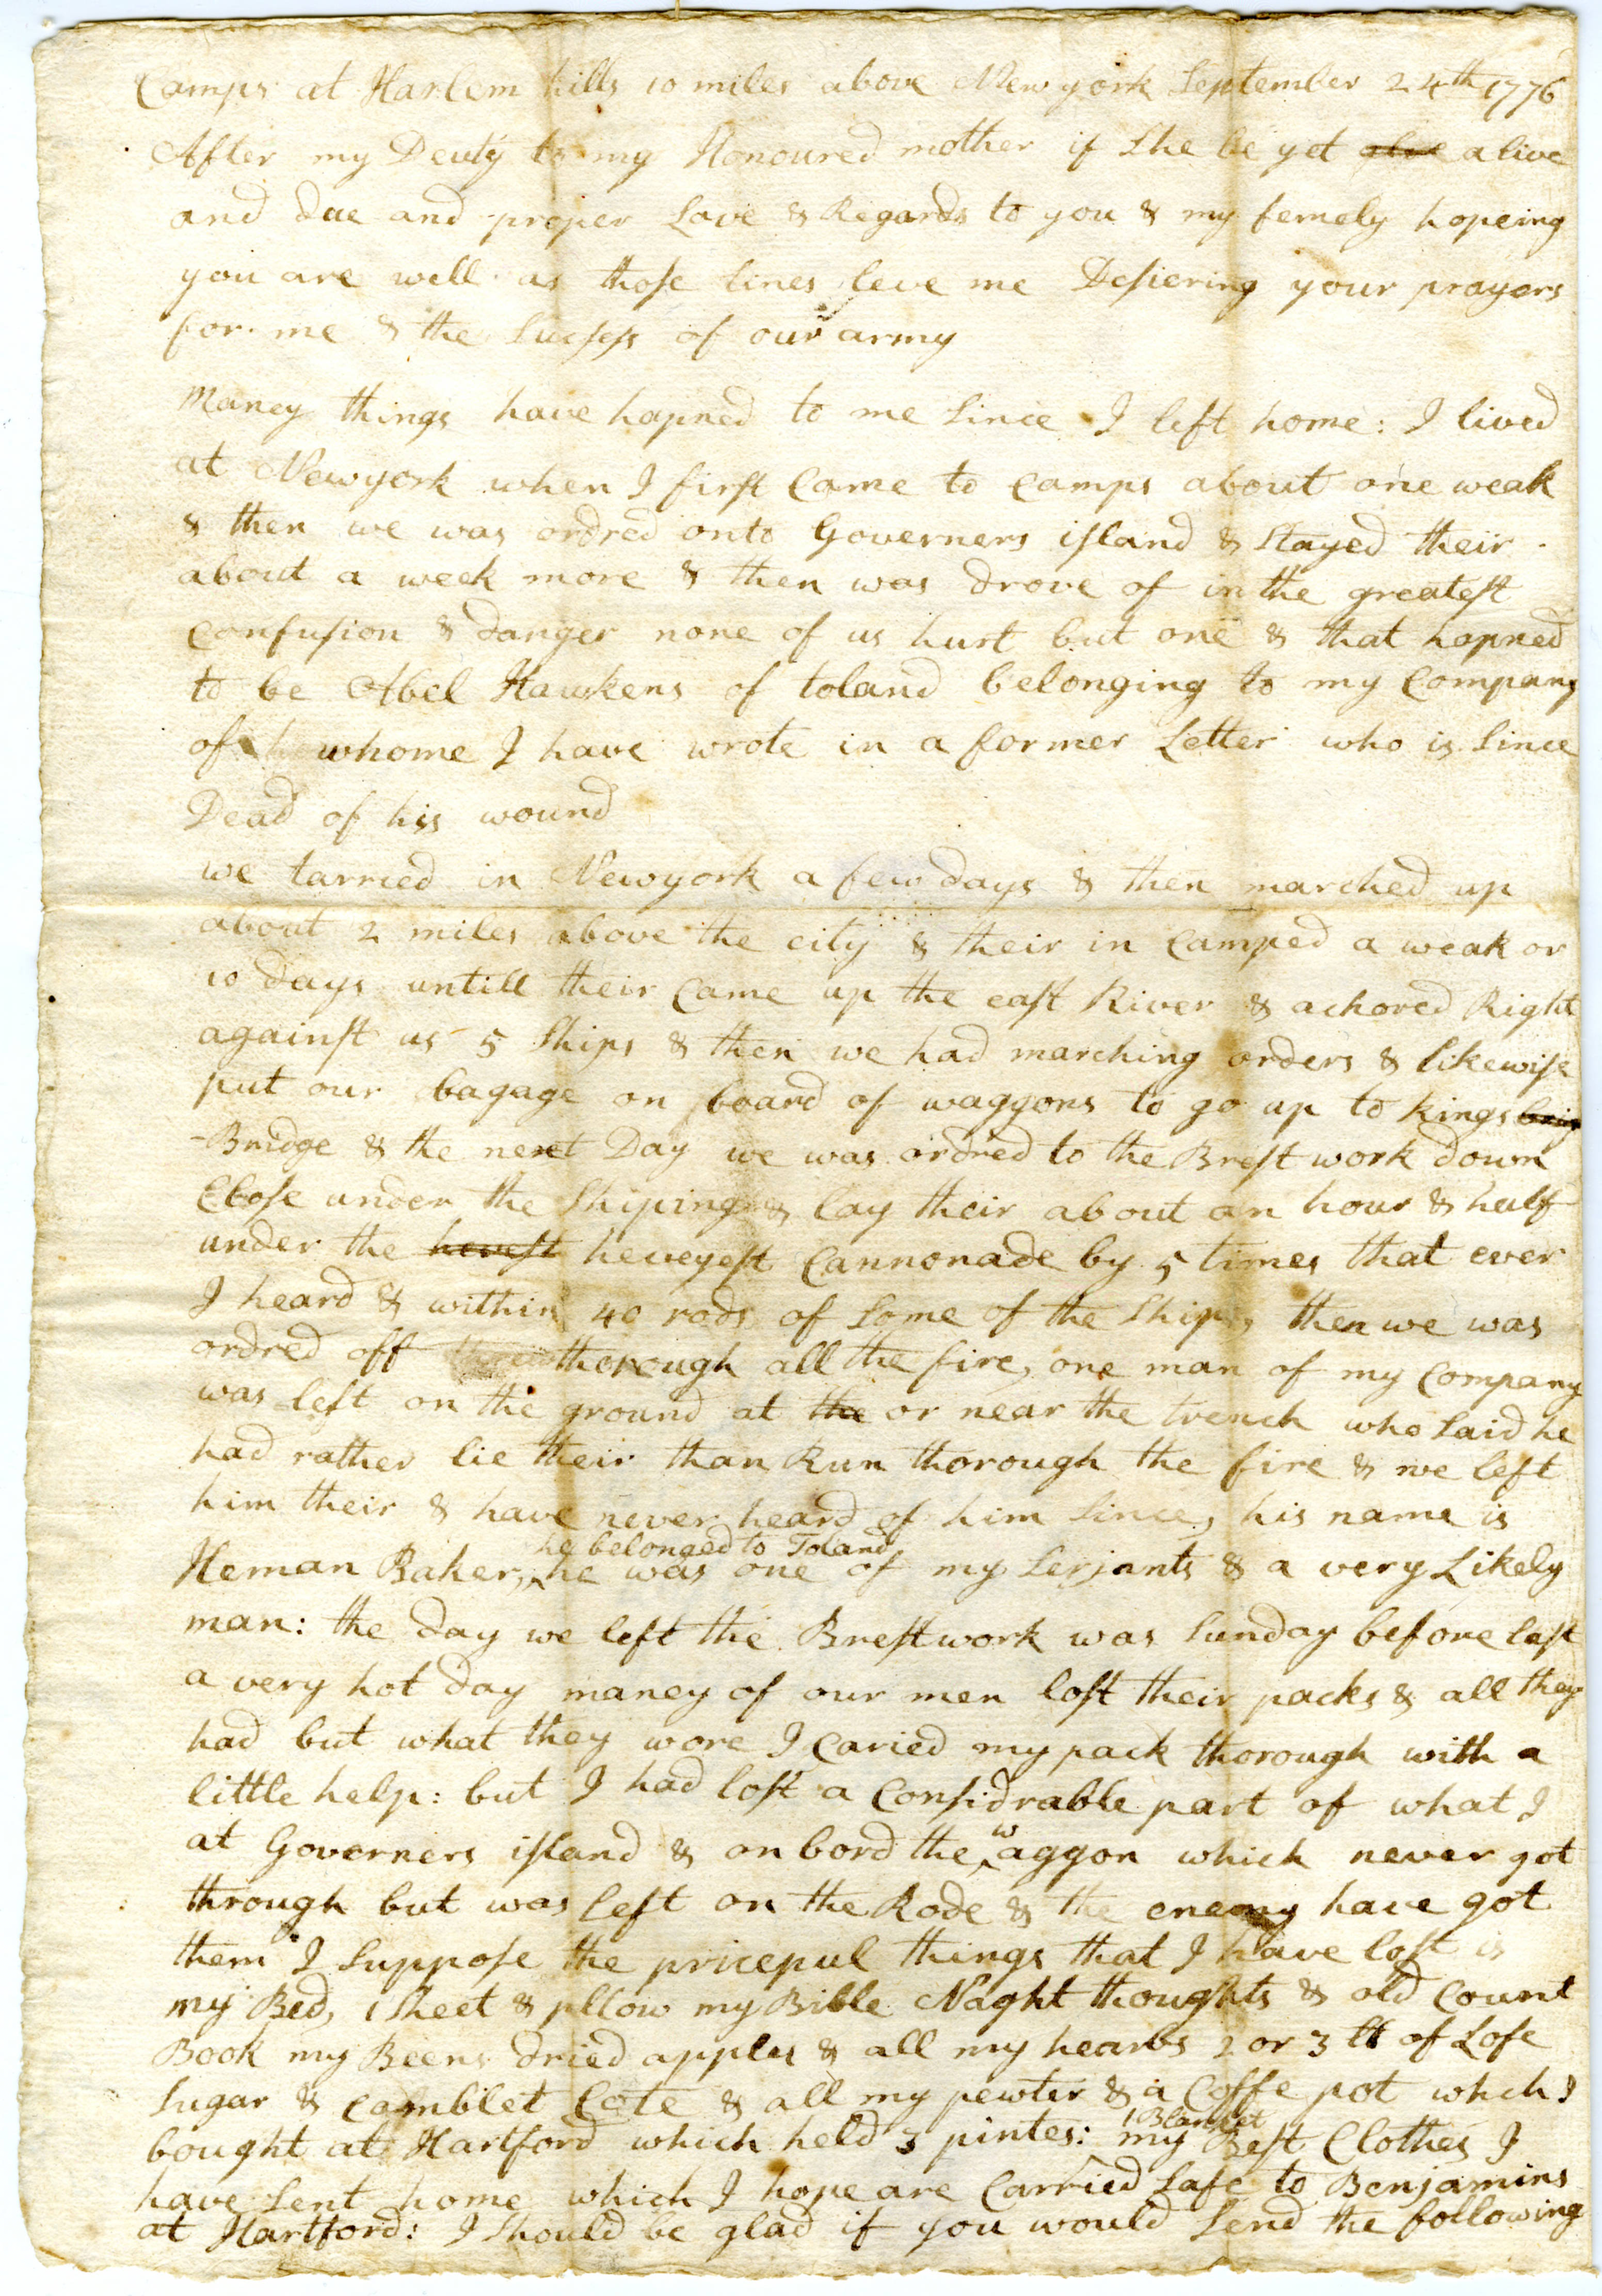 Camps at Harlem hills 10 miles above Newyork September 24th 1776
After my Deuty to my Honoured mother if She be yet alive
and due and proper Love & Regards to you & my femely hopeing
you are well as those lines leve me Desiering your prayers
for me & the Sucsess of our army
Maney things have hapned to me Since I left home: I lived
at Newyork when I first Came to Camps about one weak
& then we was ordred onto Governers island & Stayed their
about a week more & then was drove of in the greatest
Confusion & danger none of us hurt but one & that hapned
to be Abel Hawkens of toland belonging to my Company
of whome I have wrote in a former Letter who is Since
Dead of his wound
we tarried in Newyork a few days & then marched up
about 2 miles above the city & their in Camped a weak or
10 days untill their Came up the east River & achored Right
against us 5 Ships & then we had marching orders & likewise
put our bagage on board of waggons to go up to Kings
Bridge & the next Day we was ordred to the Brest work down
Close under the Shiping & lay their about an hour & half
under the hevest heveyest Cannonade by 5 times that ever
I heard & within 40 rods of Some of the Ships, then we was
ordred off thorough all the fire, one man of my Company
was left on the ground at the or near the trench who Said he
had rather lie their than Run thorough the fire & we left
him their & have never heard of him Since, his name is
Heman Baker, he belonged to Toland he was one of my Serjants & a very Likely
man: the day we left the Brestwork was Sunday before last
a very hot day maney of our men lost their packs & all they
had but what they wore I Caried my pack thorough with a
little help: but I had lost a Considrable part of what I
at Governers island & on bord the waggon which never got
through but was left on the Rode & the enemy have got
them I Suppose the pricepul things that I have lost is
my Bed, 1 Sheet & pllow my Bible Naght thoughts & old Count
Book my Beens dried apples & all my hearbs 2 or 3 lb of Lofe
Sugar & Camblet Cote & all my pewter & a Coffe pot whch I
bought at Hartford which held 3 pintes: 1 Blanket my Best Clothes I
have Sent home which I hope are Carried Safe to Benjamins
at Hartford: I Should be glad if you would Send the following